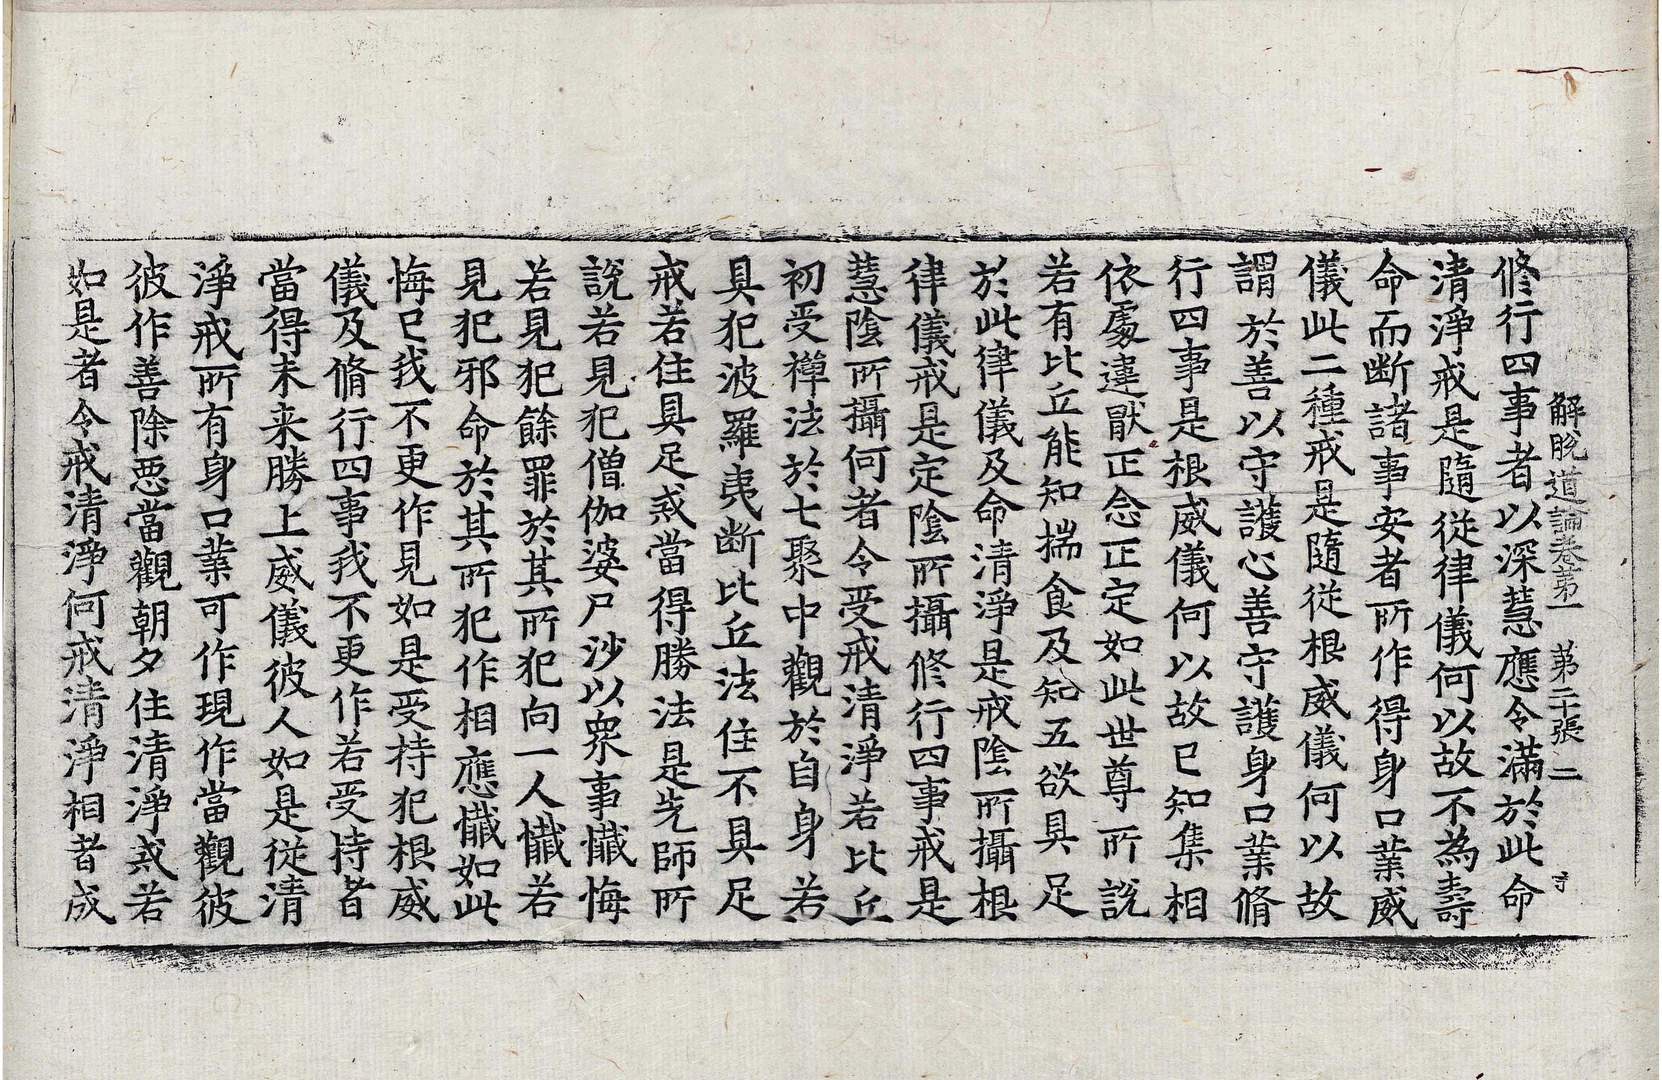 解脫道論卷第一　第二十張　二　寺
修行四事者以深慧應令滿於此命
清淨戒是隨從律儀何以故不為壽
命而断諸事安者所作得身口業威
儀此二種戒是隨從根威儀何以故
謂於善以守護心善守護身口業脩
行四事是根威儀何以故已知集相
依處違猒正念正定如此世尊所說
若有比丘能知揣食及知五欲具足
於此律儀及命清淨是戒陰所攝根
律儀戒是定陰所攝修行四事戒是
慧陰所攝何者令受戒清淨若比丘
初受禪法於七聚中觀於自身若
具犯波羅夷断比丘法住不具足
戒若住具足戒當得勝法是先師所
說若見犯僧伽婆尸沙以眾事懺悔
若見犯餘罪於其所犯向一人懺若
見犯邪命於其所犯作相應懺如此
悔已我不更作見如是受持犯根威
儀及脩行四事我不更作若受持者
當得未来勝上威儀彼人如是從清
淨戒所有身口業可作現作當觀彼
彼作善除恶當觀朝夕住清淨戒若
如是者令戒清淨何戒清淨相者成